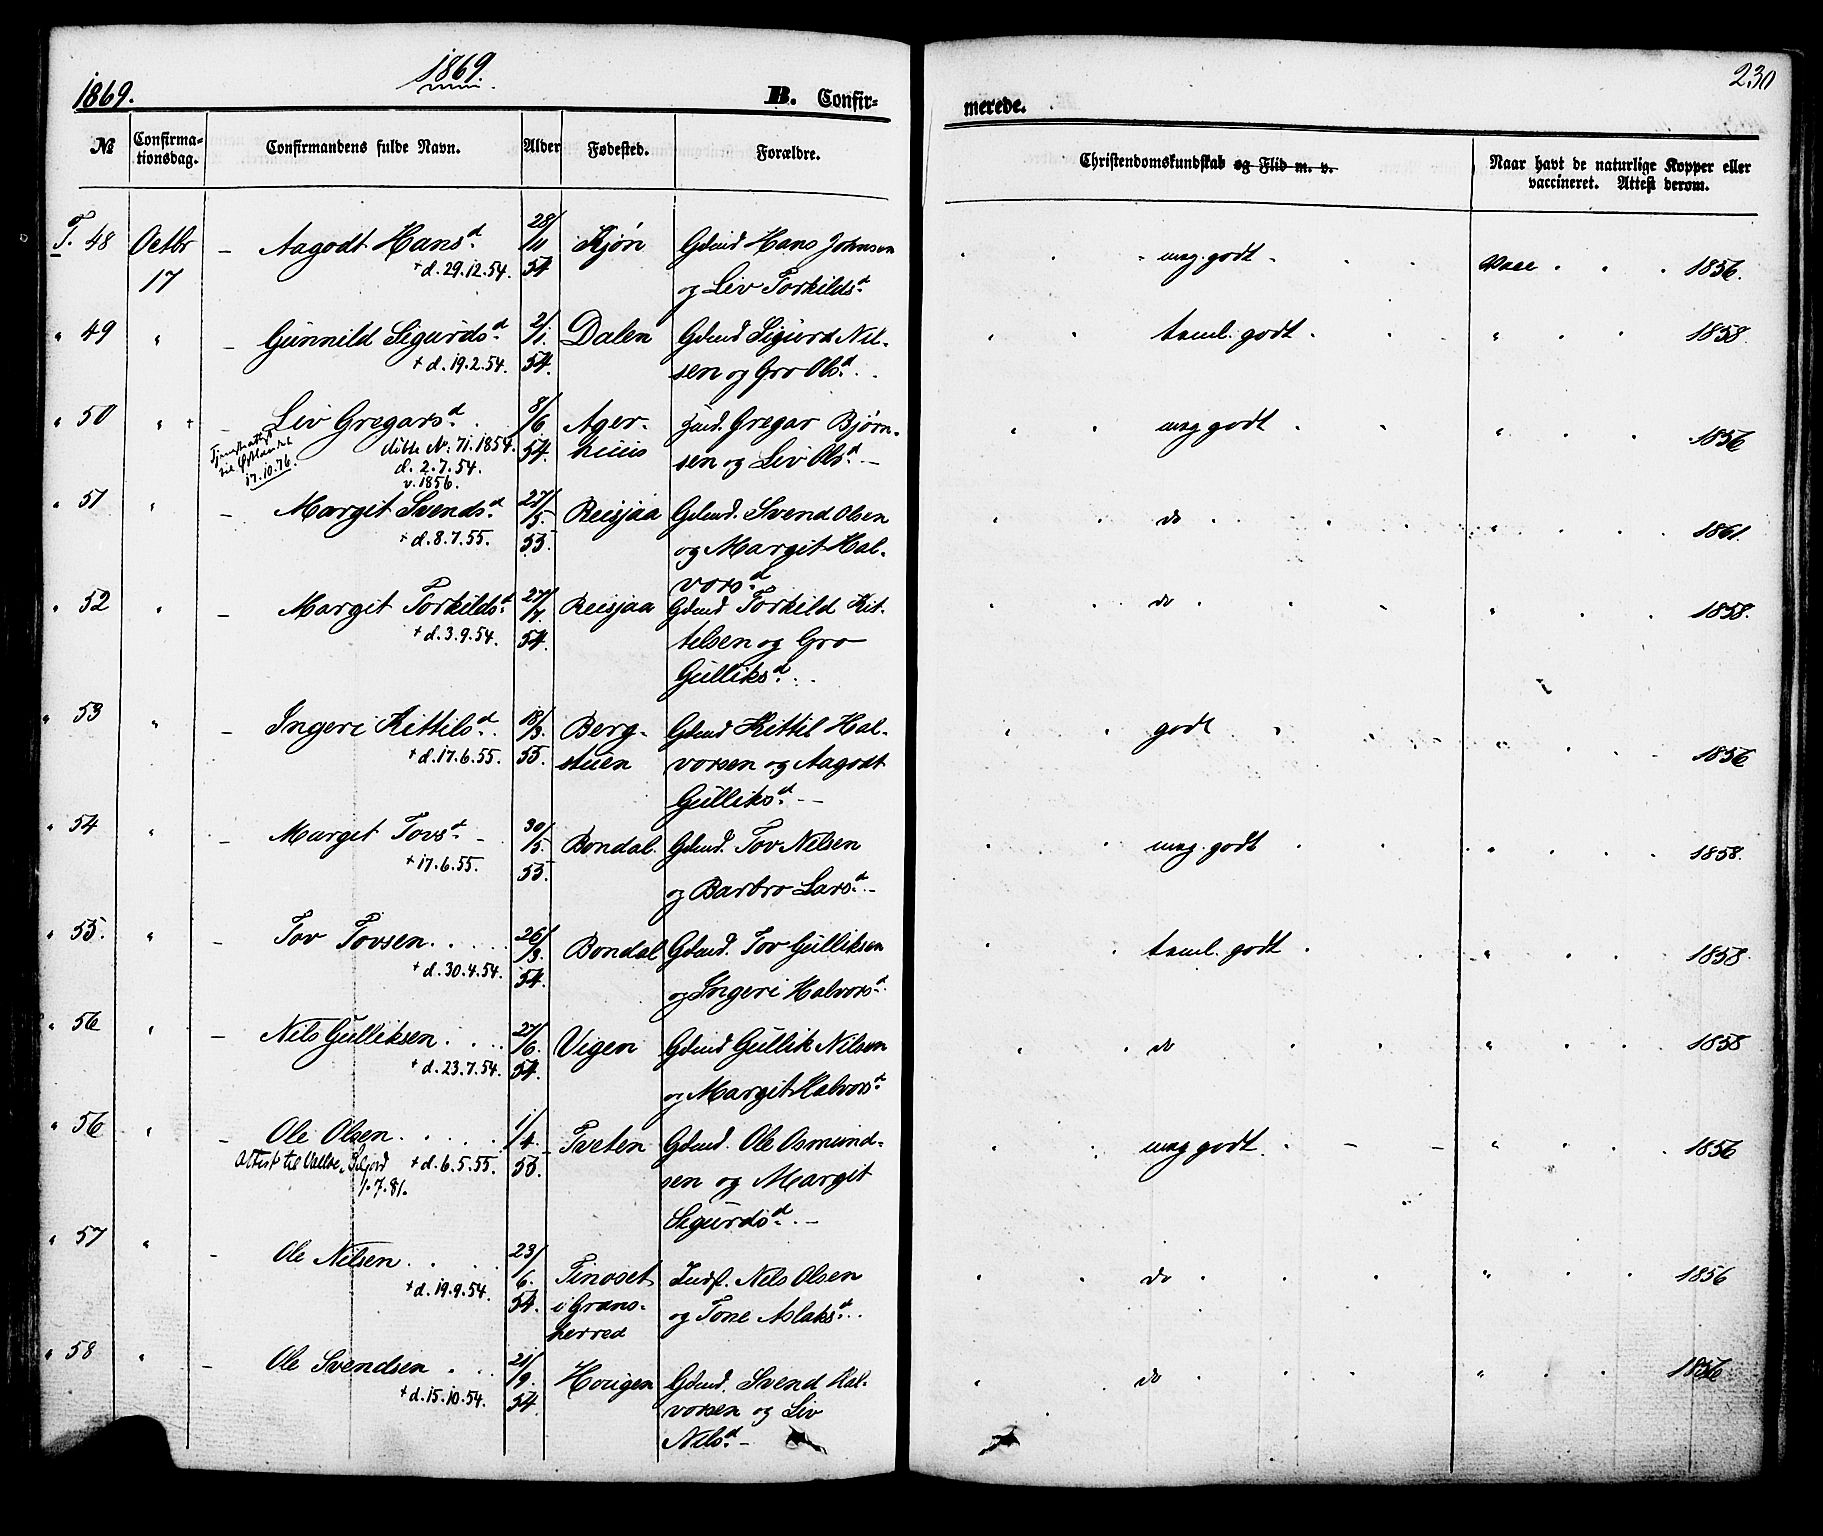 1869.
1869.
B. Confir-
№ Confirma-
tionsdag. Confirmandens fulde Navn. Alder Fødested. Forældre.
T. 48 Octbr – Aagodt Hansd. 28/11 Kjøn Gdmd Hans Johnsen
17 + d. 29.12.54. 54 og Liv Torkildsd.
" 49 " – Gunnild Sigurdsd. 2/1. Dalen Gdmd Sigurd Nil-
+ d. 19.2.54. 54. sen og Gro Olsd.
" 50 " + – Liv Gregarsd. 8/6 Ager- Gdmd. Gregar Bjørn-
døbte Nr: 71. 1854. 54. huus sen og Liv Olsd. –
17.10.76. d. 2.7.54.
v. 1856.
" 51 " – Margit Svendsd. 27/5. Reisjaa Gdmd. Svend Olsen
+ d. 8.7.55. 55. og Margit Hal-
vorsd.
" 52 " – Margit Torkildsd. 27/7. Reisjaa Gdmd Torkild Kit-
+ d. 3.9.54. 54. telsen og Gro
Gulliksd.
" 53 " – Ingeri Kittilsd. 18/3. Berg- Gdmd Kittil Hal-
+ d. 17.6.55. 55. stuen vorsen og Aagodt
Gulliksd. –
" 54 " – Margit Tovsd. – 30/5. Bondal. Gdmd. Tov Nilsen
+ 17.6.55. 55. og Barbro Larsd. –
" 55. " – Tov Tovsen. 26/3. Bondal Gdmd. Tov Gulliksen
+ d. 30.4.54. 54. og Ingeri Halvorsd.
" 56 " – Nils Gulliksen. 27/6. Vigen Gdmd Gullik Nilsen
+ d. 23.7.54. 54. og Margit Halvorsd.
" 56 " – Ole Olsen. 1/4. Tveten Gdmd. Ole Osmund-
Attest til Seljord + d. 6.5.55. 55. sen og Margit
1.7.81. Sigurdsd. –
" 57 " – Ole Nilsen. 23/6. Tinoset Indst. Nils Olsen
+ d. 19.9.54. 54. i Grans- og Tone Aslaksd.
herred
" 58 " – Ole Svendsen. 21/9. Hougen Gdmd. Svend Hal-
+ d. 15.10.54. 54. vorsen og Liv
Nilsd. –
230
merede.
Christendomskundskab og Flid m. v. Naar havt de naturlige Kopper eller
vaccineret. Attest derom.
" " meg. godt Vacc 1856.
" " taml. godt " 1858.
" " meg godt " 1856
" " do " 1861.
" " do " 1858.
" " godt " 1856
" " meg. godt " 1858.
" " taml. godt " 1858.
" " do " 1858
" " meg godt. " 1856
" " do " 1856
" " do " 1856